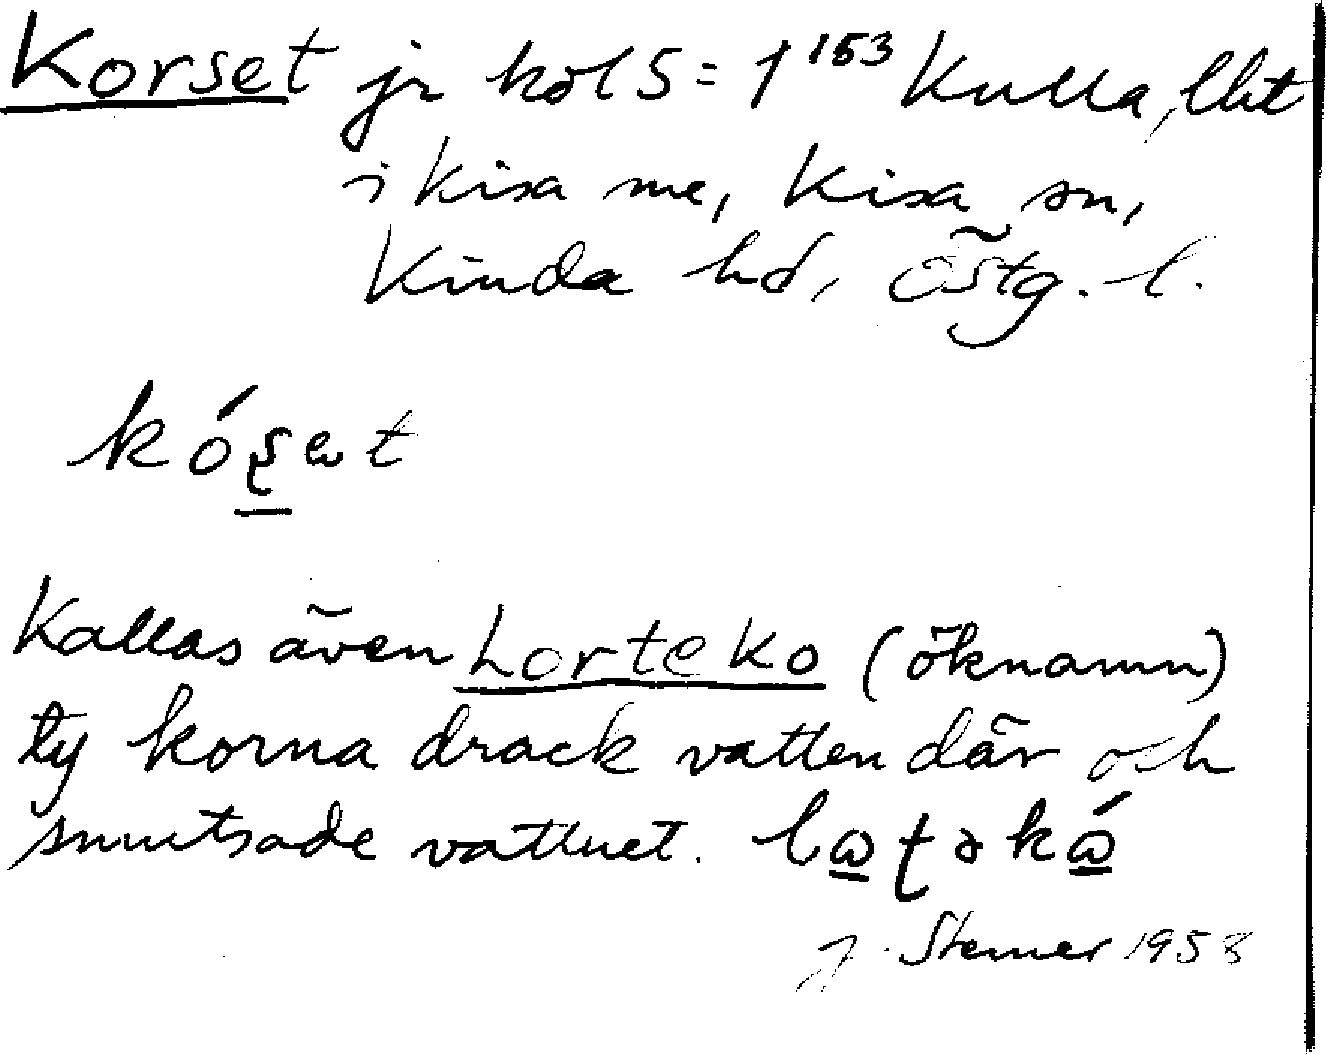 Korset jr kol S = 1 153 Kulla, lht
i Kisa me, Kisa sn,
Kinda hd, Östg. l.
kós̱et
Kallas även Lorteko (öknamn)
ty korna drack vatten där och
smutsade vattnet. lɷʈəkɷ́
J. Sterner 1953